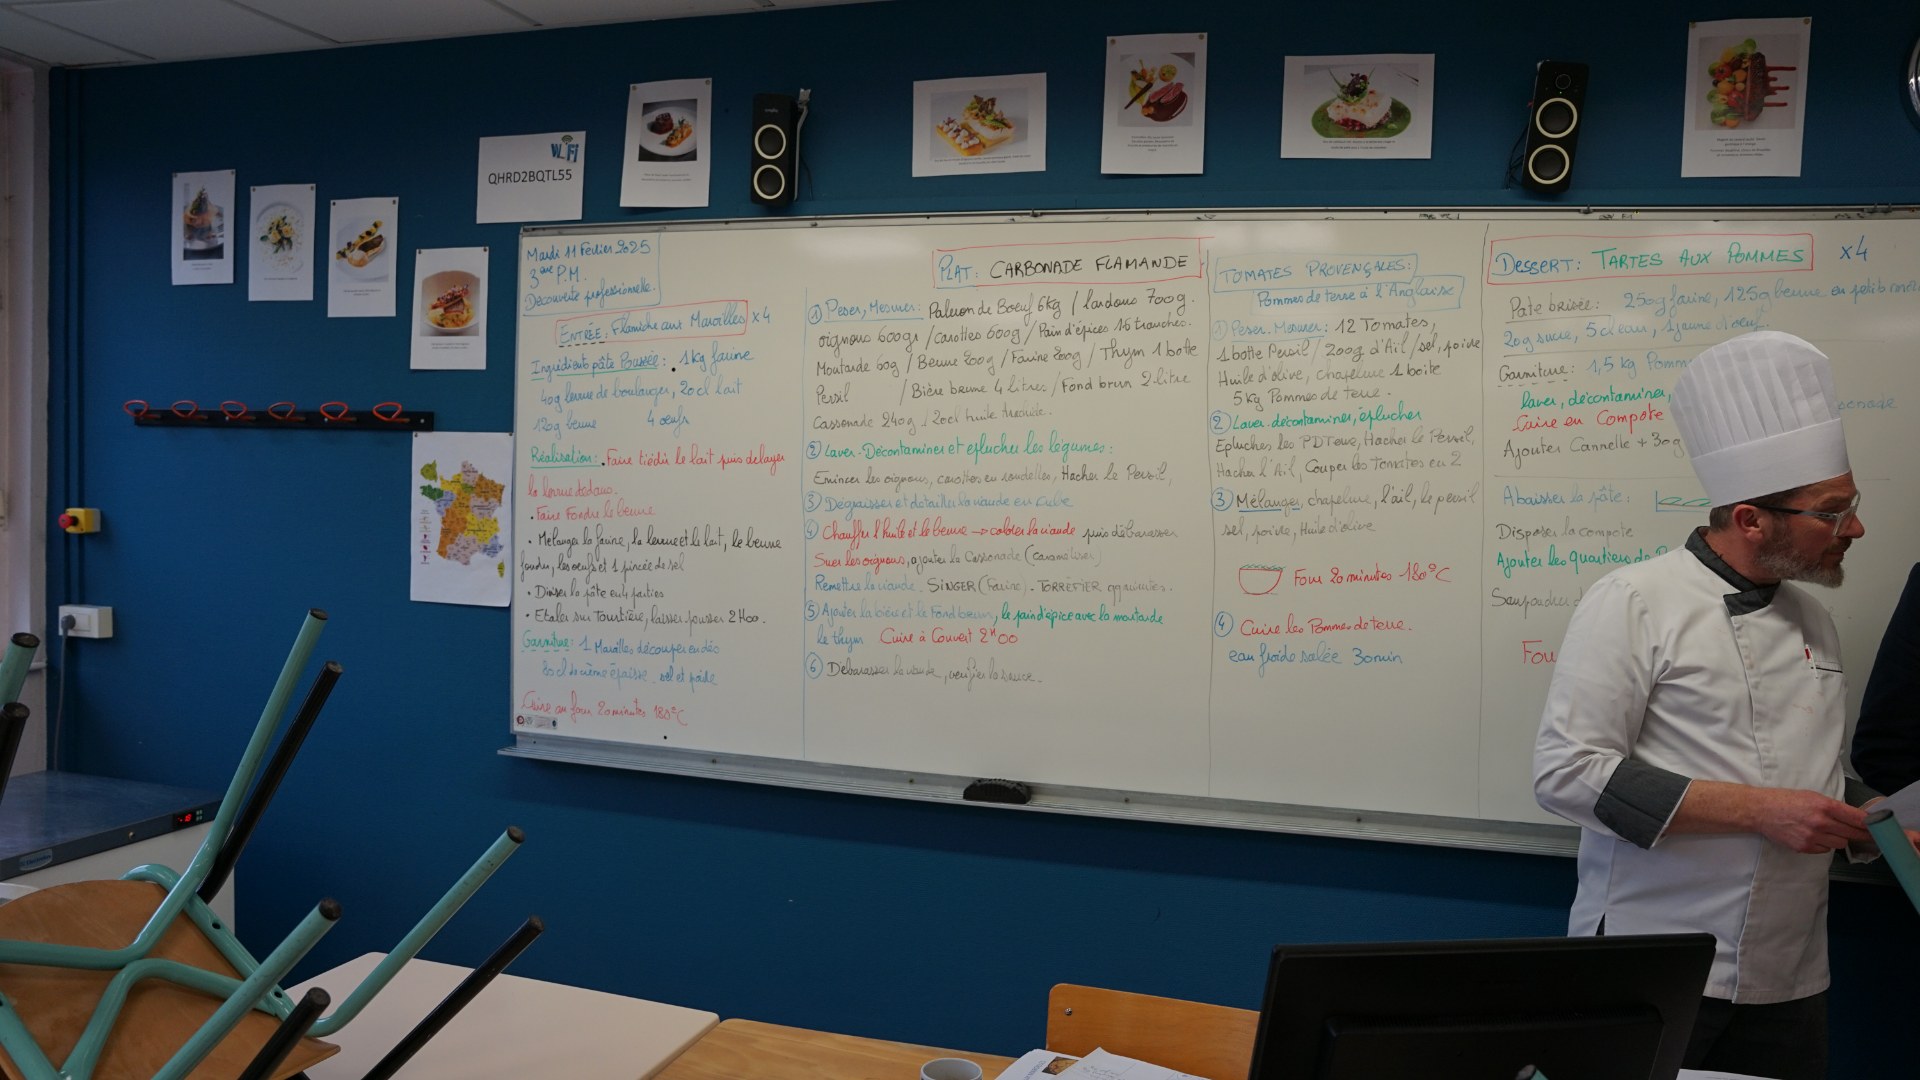 WiFi
QHRD2BQTL55
Mardi 11 Février 2025
3ème P.M.
Découverte professionnelle.
ENTRÉE: Flamiche aux Maroilles x4
Ingrédients pâte Poussée: 1kg farine
40g levure de boulanger, 20 cl lait
120g beurre 4 oeufs
Réalisation: . Faire tiédir le lait puis délayer
la levure dedans.
. Faire Fondre le beurre
• Mélanger la farine, la levure et le lait, le beurre
fondu, les oeufs et 1 pincée de sel
• Diviser la pâte en 4 parties
• Etaler sur Tourtière, laisser pousser 2H00.
Garniture: 1 Maroilles découper en dés
80 cl de crème épaisse, sel et poivre
Cuire au four 20 minutes 180°C
PLAT: CARBONADE FLAMANDE
① Peser, Mesurer: Paleron de Boeuf 6kg / lardons 700g.
oignons 600g / carottes 600g / Pain d'épices 16 tranches.
Moutarde 60g / Beurre 200g / Farine 200g / Thym 1 botte
Persil / Bière brune 4 litres / Fond brun 2 litre
Cassonade 240g, 20cl huile
② Laver. Décontaminer et éplucher les légumes:
Emincer les oignons, carottes en rondelles, Hacher le Persil,
③ Dégraisser et détailler la viande en cube
④ Chauffer l'huile et le beurre → colorer la viande puis débarrasser
Suer les oignons, ajouter la Cassonade (Caraméliser)
Remettre la viande. SINGER (Farine). TORREFIER minutes.
⑤ Ajouter la bière et le Fond brun, le pain d'épice avec la moutarde
le thym Cuire à Couvert 2H00
⑥ Débarrasser la viande, vérifier la sauce.
TOMATES PROVENÇALES:
Pommes de terre à l'Anglaise
① Peser. Mesurer: 12 Tomates,
1 botte Persil / 200g d'Ail / sel, poivre
Huile d'olive, chapelure 1 boite
5 kg Pommes de terre.
② Laver. décontaminer, éplucher
Eplucher les PDTerre, Hacher le Persil,
Hacher l'Ail, Couper les Tomates en 2
③ Mélanger, chapelure, l'ail, le persil
sel, poivre, Huile d'olive
Four 20 minutes 180°C
④ Cuire les Pommes de terre.
eau froide salée 30 min
DESSERT: TARTES AUX POMMES x4
Pâte brisée: 250g farine, 125g beurre en petits
20g sucre, 5 cl eau, 1 jaune d'oeuf.
Garniture: 1,5 kg Pomm
laver, décontaminer,
Cuire en Compote
Ajouter Cannelle + 30g
Abaisser la pâte:
Disposer la compote
Ajouter les quartiers de
Saupoudrer
Fou